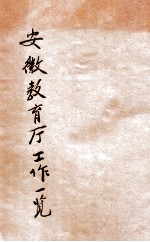 安徽教育厅工作一览